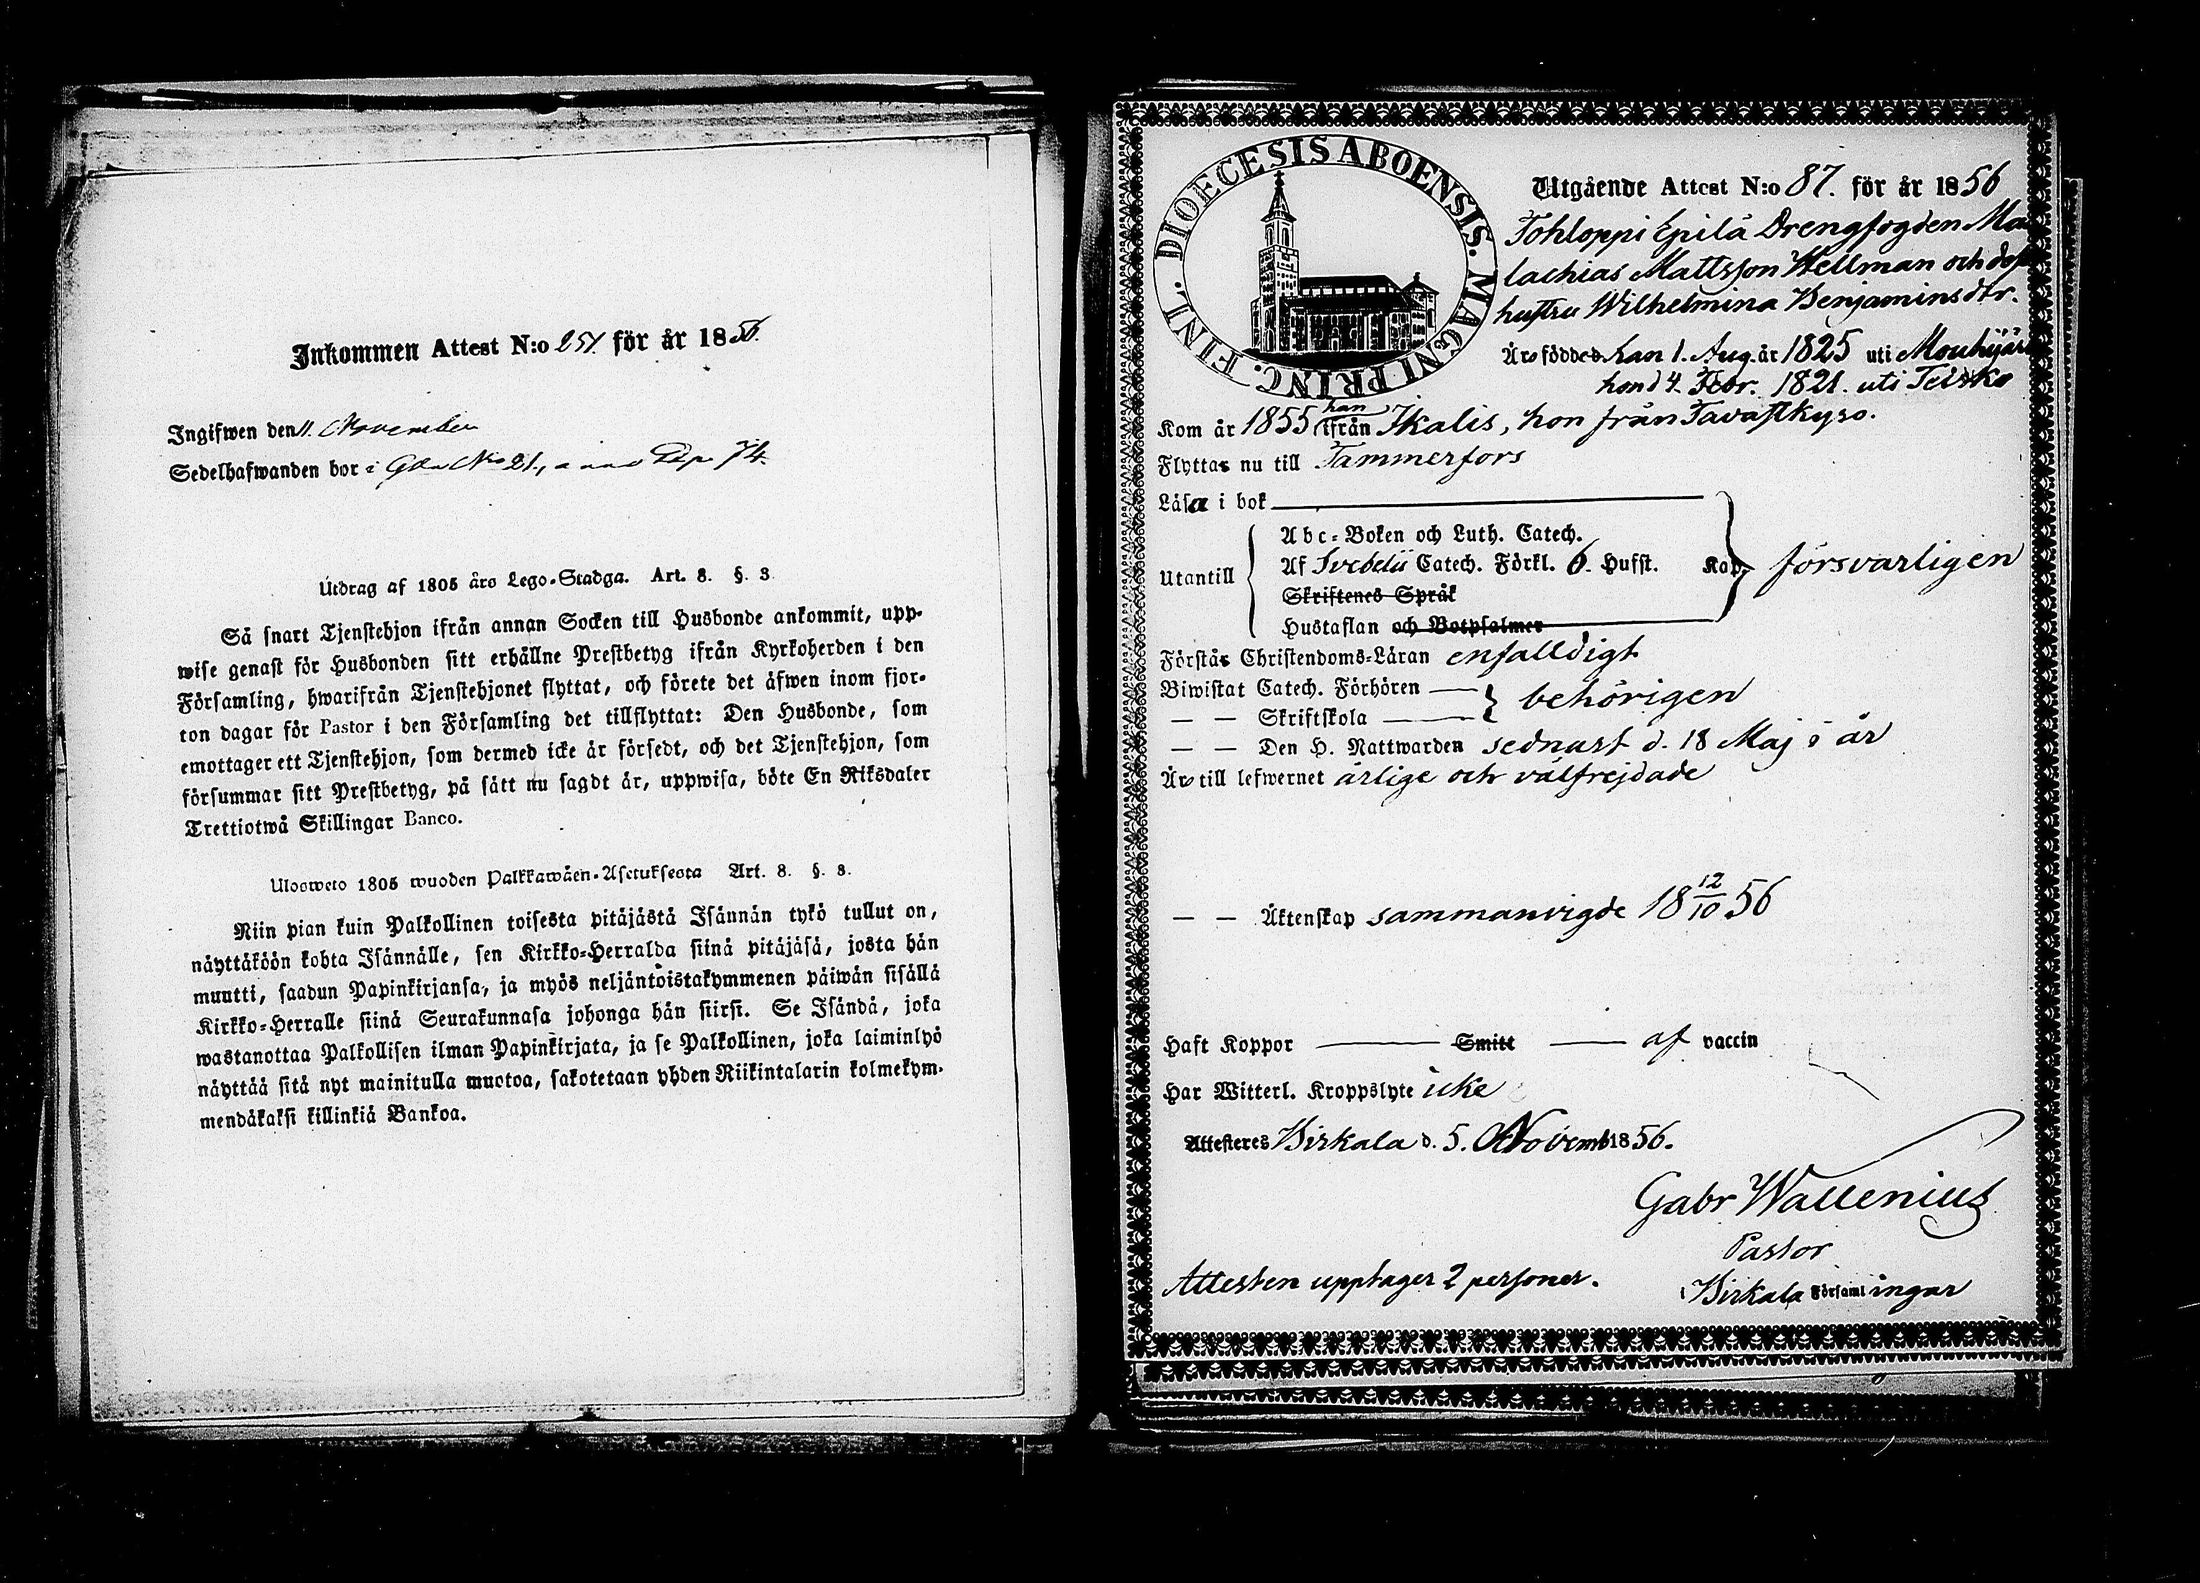 Inkommen Attest N:o 251. för år 1856.
Ingifwen den 11. November
Sedelhafwanden bor i Gden No 21, 74.
Utdrag af 1805 års Lego-Stadga. Art. 8. §. 3
Så snart Tjenstehjon ifrån annan Socken till Husbonde ankommit, upp-
wise genast för Husbonden sitt erhållne Prestbetyg ifrån Kyrkoherden i den
Församling, hwarifrån Tjenstehjonet flyttat, och förete det äfwen inom fjor-
ton dagar för Pastor i den Församling det tillflyttat: Den Husbonde, som
emottager ett Tjenstehjon, som dermed icke är försedt, och det Tjenstehjon, som
försummar sitt Prestbetyg, på sätt nu sagdt är, uppwisa, böte En Riksdaler
Trettiotwå Skillingar Banco.
Ulosweto 1805 wuoden Palkkawäen-Asetuksesta Art. 8. §. 3.
Niin pian kuin Palkollinen toisesta pitäjästä Isännän tykö tullut on,
näyttäköön kohta Isännälle, sen Kirkko-Herralda siinä pitäjäsä, josta hän
muutti, saadun Papinkirjansa, ja myös neljäntoistakymmenen päiwän sisällä
Kirkko-Herralle siinä Seurakunnasa johonga hän siirsi. Se Isändä, joka
wastanottaa Palkollisen ilman Papinkirjata, ja se Palkollinen, joka laiminlyö
näyttää sitä nyt mainitulla muotoa, sakotetaan yhden Riikintalarin kolmekym-
mendäkaksi killinkiä Bankoa.
FINL. DIOECESIS ABOENSIS. MAGNI PRINC.
Utgående Attest N:o 87. för år 1856
Tohloppi Epilä Drengfogden Ma
lachias Mattsson Hellman och dess
hustru Wilhelmina Benjaminsdtr.
Äro födde han 1. Aug. år 1825 uti Mouhijärvi
hon d 4. Febr. 1821. uti Teisko
Kom år 1855 han ifrån Ikalis, hon från Tavastkyro.
Flytta nu till Tammerfors
Läsa i bok
Utantill
Abc-Boken och Luth. Catech.
Af Svebelii Catech. Förkl. 6. Hufst. Kap.
Skriftenes Språk
Hustaflan och Botpsalmer
försvarligen
Förstår Christendoms-Läran enfalldigt
Biwistat Catech. Förhören
— — Skriftskola
behörigen
— — Den H. Nattwarden sednast d. 18 Maj i år
Äro till lefwernet ärlige och välfrejdade
— — Äktenskap sammanvigde 18 12/10 56
Haft Koppor — Smitt — af vaccin
Har Witterl. Kroppslyte icke
Attesteres Birkala d. 5. Novemb 1856.
Gabr Wallenius
Pastor
Attesten upptager 2 personer.
i Birkala Församlingar